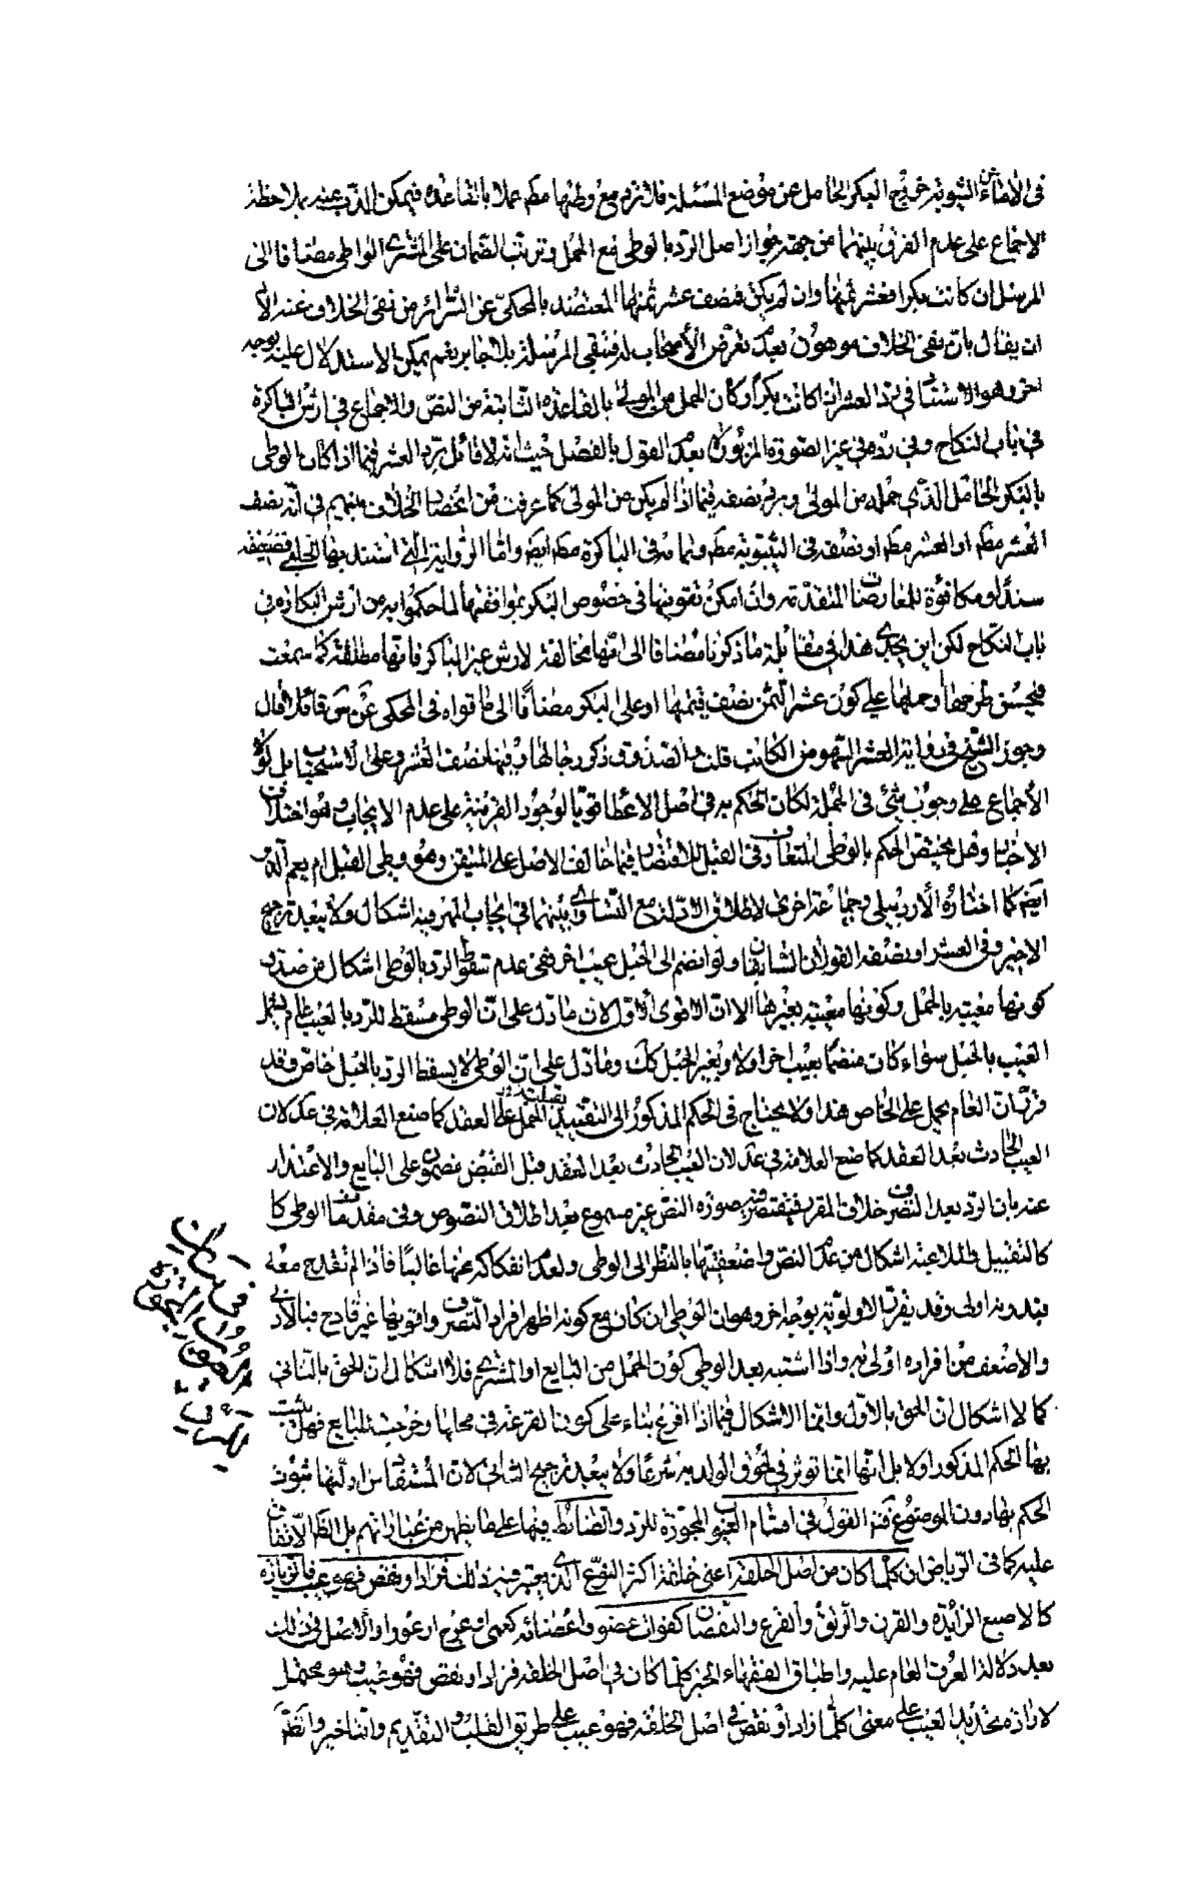 في الثيوبة خروج البكر الحامل عن موضع المسئلة فالتزم مع وطئها مط عملا بالقاعدة فيمكن الذب عنه بملاحظة
الاجماع على عدم الفرق بينهما من جهة جواز اصل الرد بالوطى مع الحمل وترتب الضمان على المشترى الواطى مضافا الى
المرسل ان كانت بكرا فعشر ثمنها وان لم يكن فنصف عشر ثمنها المعتضد بالمحكى عن السرائر من نفى الخلاف عنه الا
ان يقال بان نفى الخلاف موهون بعدم تعرض الأصحاب له فتبقى المرسلة بلا جابر نعم يمكن الاستدلال عليه بوجه
اخر وهو الاستناد في رد العشر اذا كانت بكرا وكان الحمل من المولى بالقاعدة الثابتة من النص والاجماع في ارش الباكرة
في باب النكاح وفي رده في غير الصورة المزبورة بعدم القول بالفصل حيث انه لا قائل برد العشر فيما اذا كان الوطى
بالبكر الحامل الذى حمله من المولى وبرد نصفه فيما اذا لم يكن من المولى كما عرفت من انحصار الخلاف بينهم في انه نصف
العشر مط او العشر مط او نصفه في الثيبوبة مط وتمامه في الباكرة مط ايض واما الرواية التى استند بها الحلبى فضعيفة
سندا ومكافؤة للمعارضات المتقدمة وان امكن تقويتها في خصوص البكر بموافقتها لما حكموا به من ارش البكارة في
باب النكاح لكن اين يجدى هذا في مقابلة ما ذكرنا مضافا الى انها مخالفة لارش غير الباكر فانها مطلقة كما سمعت
فيحسن طرحها وحملها على كون عشر الثمن نصف قيمتها او على البكر مضافا الى ما قواه في المحكى عن س قائلا قال
وجوز الشيخ في رواية العشر السهو من الكاتب قلت الصدوق ذكر رجالها وفيها نصف العشر وعلى الاستحباب بل لولا
الاجماع على وجوب شئ في الجملة لكان الحكم به في اصل الاعطاء قويا لوجود القرينة على عدم الايجاب وهو اختلاف
الاخبار وهل يختص الحكم بالوطى المتعارف في القبل للاقتصار فيما خالف الاصل على المتيقن وهو وطى القبل ام يعم الدبر
ايض كما اختاره الأردبيلى وجماعة اخرى لاطلاق الادلة مع التساوى بينهما في ايجاب المهر فيه اشكال ولا يبعد ترجيح
الاخير وفي العشر او نصفه القولان السابقان ولو انضم الى الحبل عيب اخر ففى عدم سقوط الرد بالوطى اشكال من صدق
كونها معيبة بالحمل وكونها معيبة بغيرها الا ان الاقوى الاول لان ما دل على ان الوطى مسقط للرد بالعيب عام يشمل
العيب بالحبل سواء كان منضما بعيب اخر او لا وبغير الحبل كك وما دل على ان الوطى لا يسقط الرد بالحبل خاص وقد
قرر ان العام يحمل على الخاص هذا ولا يحتاج في الحكم المذكور الى التقييد بسبق الحمل على العقد كما صنع العلامة في عد لان
العيب الحادث بعد العقد كما صنع العلامة في عد لان العيب الحادث بعد العقد قبل القبض مضمون على البايع والاعتذار
عنه بان الرد بعد التصرف خلاف المقرر فيقتصر فيه صورة النص غير مسموع بعد اطلاق النصوص وفي مقدمات الوطى كا
كالتقبيل والملاعبة اشكال من عدم النص واضعفيتها بالنظر الى الوطى ولعدم انفكاكه عنها غالبا فاذا لم تقدح معه
فبدونه اولى وقد يقرر الاولوية بوجه اخر وهو ان الوطى ان كان مع كونه اظهر افراد التصرف واقويها غير قادح فبالأدنى
والاضعف من افراده اولى به واذا اشتبه بعد الوطى كون الحمل من البايع او المشترى فلا اشكال ان لحق بالثانى
كما لا اشكال ان لحق بالاول وانما الاشكال فيما اذا اقرع بناء على كون القرعة في محلها وخرجت للبايع فهل يثبت
بها الحكم المذكور او لا بل انها انما توثر في لحوق الولد به شرعا ولا يبعد ترجيح الثانى لان المستفاد من ادلتها ثبوت
الحكم بها دون الموضوع فتم القول في اقسام العيوب المجوزة للرد والضابط فيها على ما يظهر من عباراتهم بل الظ الاتفاق
عليه كما في الرياض ان كلما كان من اصل الخلقة اعنى خلقة اكثر النوع الذى يعتبر فيه ذلك فزاد او نقص فهو عيب فالزيادة
كالاصبع الزائدة والقرن والرتق والفرع والنقصان كفوات عضو واعضائه كعمى او عرج او عور والاصل في ذلك
بعد دلالة العرف العام عليه واطباق الفقهاء الخبر كلما كان في اصل الخلقة فزاد او نقص فهو عيب وهو محتمل
لارادة تحديد العيب على معنى كلما زاد او نقص في اصل الخلقة فهو عيب على طريق القلب والتقديم والتأخير وانظر